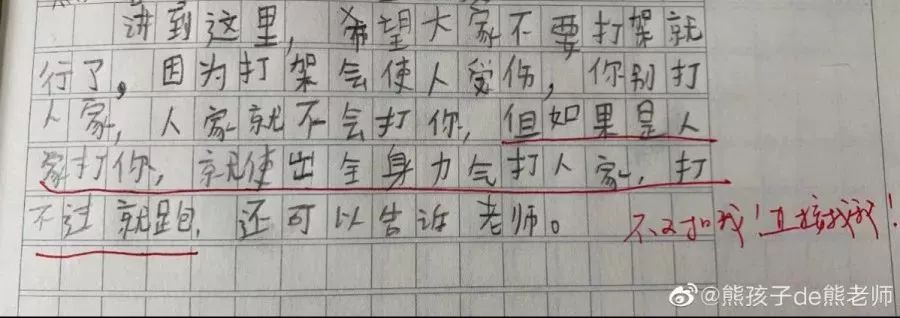 讲到这里，希望大家不要打架就
行了，因为打架会使人受伤，你别打
人家，人家就不会打你，但如果是人
家打你，就使出全身力气打人家，打
不过就跑，还可以告诉老师。
不 我！直接找我！
@熊孩子de熊老师